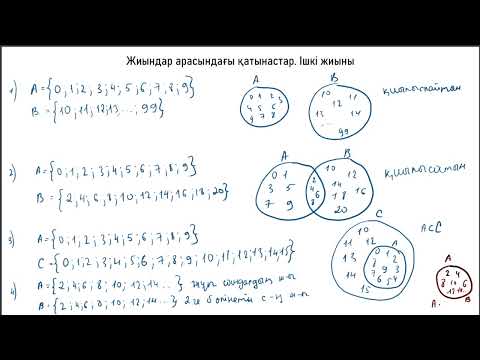 Жиындар арасындағы қатынастар. Ішкі жиыны
1) A={0;1;2;3;4;5;6;7;8;9}
B={10;11;12;13...;99}
A
0 1 2 3
4 5 6
9 7 8
B
10 11
12
13 14
....
99
қиылыспайтын
2) A={0;1;2;3;4;5;6;7;8;9}
B={2;4;6;8;10;12;14;16;18;20}
A B
0 1
3 5
7 9
2
4 6
8
10 12
14 16
18
20
қиылысатын
3) A={0;1;2;3;4;5;6;7;8;9}
C={0;1;2;3;4;5;6;7,8;9;10;11;12;13,14,15}
C
10
11 12 A
13
14
15
0 1
2
7 9 3
6 5 4
A⊂C
4) A={2;4;6;8;10;12;14...} жұп
B={2;4;6;8;10;12;14...} 2ге бөлінетін
A
2 4
8 10 6
12 14...
A. B